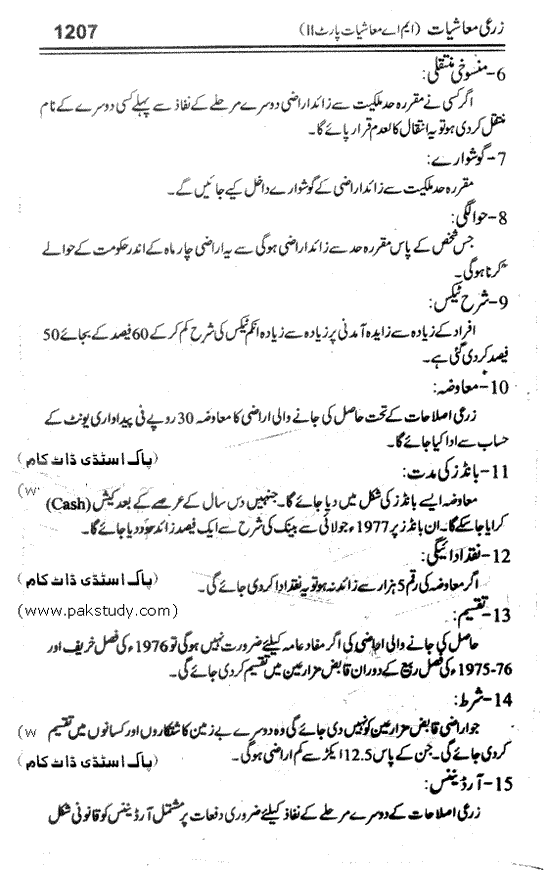 زرعی معاشیات (ایم اے معاشیات پارٹ II) 1207
6-منسوخی منتقلی:
اگر کسی نے مقررہ حد ملکیت سے زائد اراضی دوسرے مرحلے کے نفاذ سے پہلے کسی دوسرے کے نام
منتقل کر دی ہو تو یہ انتقال کالعدم قرار پائے گا۔
7-گوشوارے:
مقررہ حد ملکیت سے زائد اراضی کے گوشوارے داخل کیے جائیں گے۔
8-حوالگی:
جس شخص کے پاس مقررہ حد سے زائد اراضی ہوگی سے یہ اراضی چار ماہ کے اندر حکومت کے حوالے
کرنا ہوگی۔
9-شرح ٹیکس:
افراد کے زیادہ سے زایدہ آمدنی پر زیادہ سے زیادہ انکم ٹیکس کی شرح کم کر کے 60 فیصد کے بجائے 50
فیصد کر دی گئی ہے۔
10-معاوضہ:
زرعی اصلاحات کے تحت حاصل کی جانے والی اراضی کا معاوضہ 30 روپے فی پیداواری یونٹ کے
حساب سے ادا کیا جائے گا۔
(پاک اسٹڈی ڈاٹ کام)
11-بانڈز کی مدت:
(w
معاوضہ ایسے بانڈز کی شکل میں دیا جائے گا۔ جنہیں دس سال کے عرصے کے بعد کیش (Cash)
کرایا جا سکے گا۔ ان بانڈز پر 1977ء جولائی سے بینک کی شرح سے ایک فیصد زائد سود دیا جائے گا۔
12-نقد ادائیگی:
اگر معاوضہ کی رقم 5 ہزار سے زائد نہ ہو تو یہ نقد ادا کر دی جائے گی۔ (پاک اسٹڈی ڈاٹ کام)
13-تقسیم: (www.pakstudy.com)
حاصل کی جانے والی اراضی کی اگر مفاد عامہ کیلئے ضرورت نہیں ہوگی تو 1976ء کی فصل خریف اور
1975-76ء کی فصل ربیع کے دوران قابض مزارعین میں تقسیم کر دی جائے گی۔
14-شرط:
جو اراضی قابض مزارعین کو نہیں دی جائے گی وہ دوسرے بے زمین کاشتکاروں اور کسانوں میں تقسیم (w
کر دی جائے گی۔ جن کے پاس 12.5 ایکڑ سے کم اراضی ہوگی۔ (پاک اسٹڈی ڈاٹ کام)
15-آرڈیننس:
زرعی اصلاحات کے دوسرے مرحلے کے نفاذ کیلئے ضروری دفعات پر مشتمل آرڈیننس کو قانونی شکل